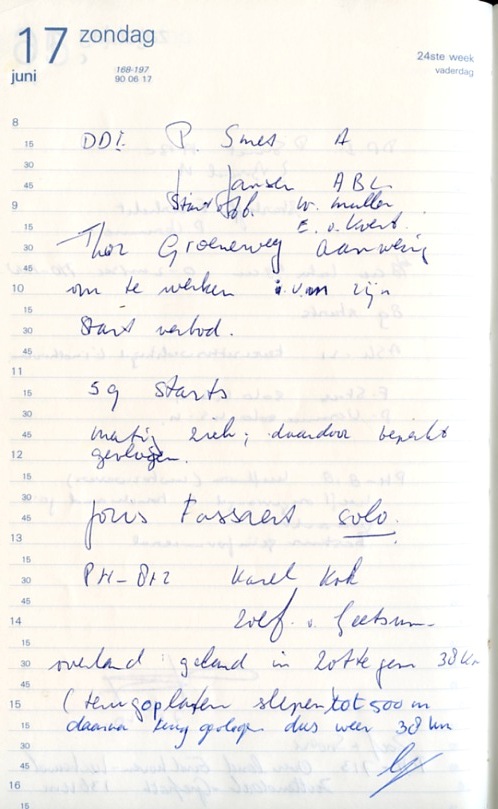 17 zondag
juni
168-197
90 06 17
24ste week
vaderdag
8
15
DDI. P. Smes A
30
45
J Jansen ABL
9
Start W. Muller
15
E. v. Kvert.
30
Thor Groeneweg aanwezig
45
10
om te werken i.v.m zijn
15
30
Start verbod.
45
11
15
59 starts
30
45
matig zicht; daardoor beperkt
12
gevlogen.
15
30
45
Joris Fassaert solo.
13
15
30
PH-
Karel Kok
45
14
Rolf v.
15
30
overland geland in Zottegem 38 km
45
15
(terugoplaten slepen) tot 500 m
15
daarna terug gevlogen dus weer 38 km
30
45
16
15